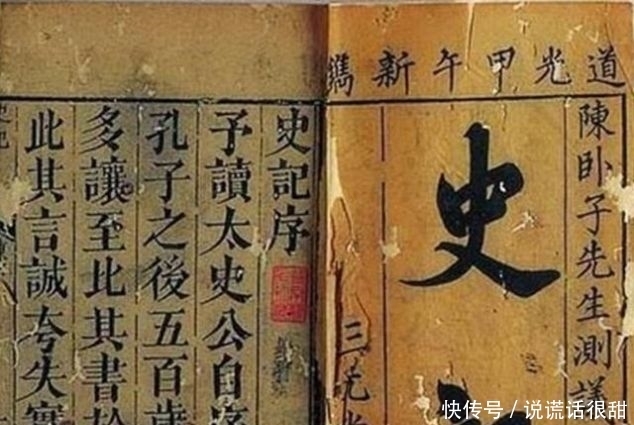 道光甲午新鐫
陳卧子先生測議
史
三元
史記序
予讀太史公自序
孔子之後五百歲
多讓至比其書於
此其言誠夸失實
快传号／说谎话很甜